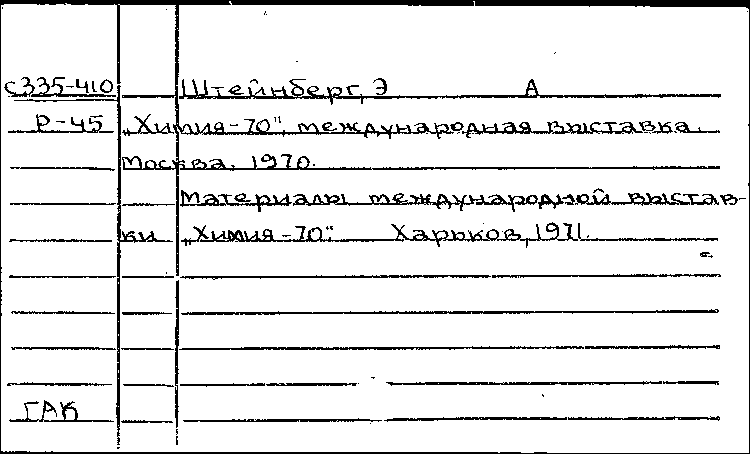 с335-410 Штейнберг, Э А
Р-45 „Химия-70", международная выставка.
Москва, 1970.
Материалы международной выстав-
ки „Химия-70". Харьков, 1971.
ГАК